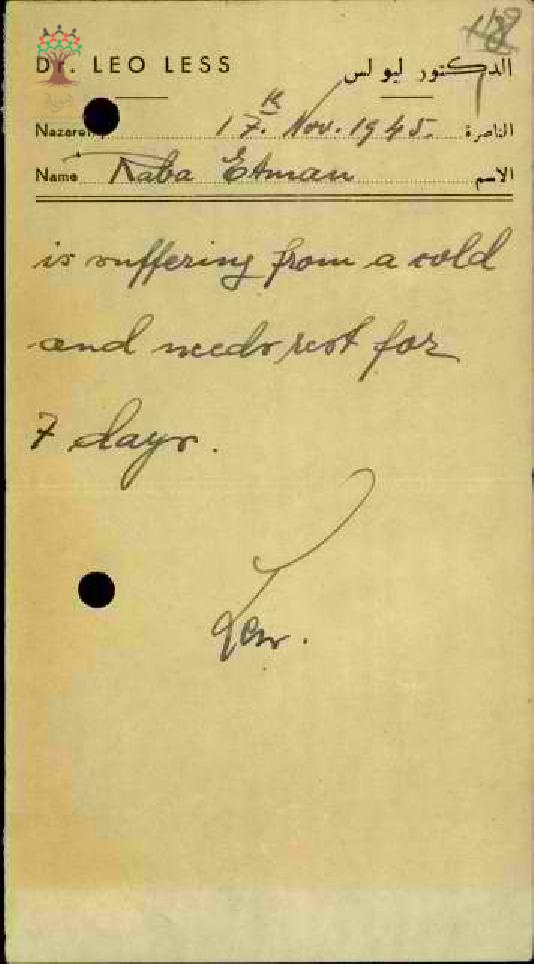 48
DR. LEO LESS الدكتور ليو لس
Nazareth 17. Nov. 1945. الناصرة
Name Raba Etman الاسم
is suffering from a cold
and needs rest for
7 days.
Less.